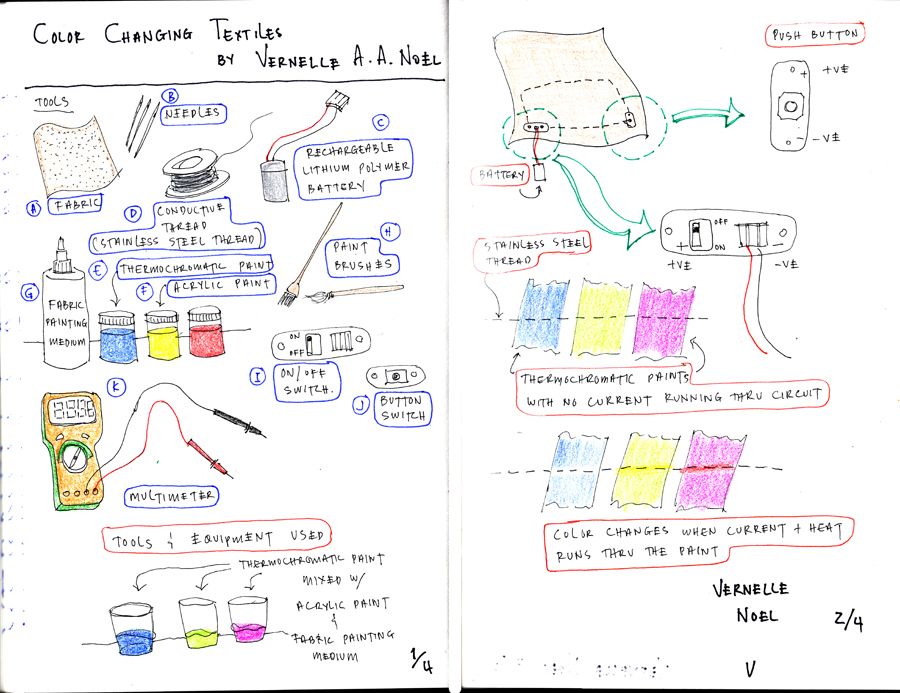 COLOR CHANGING TEXTILES
BY VERNELLE A.A. NOEL
TOOLS
B
NEEDLES
C
RECHARGEABLE
LITHIUM POLYMER
BATTERY
A
FABRIC
D
CONDUCTIVE
THREAD
(STAINLESS STEEL THREAD)
H
PAINT
BRUSHES
E
THERMOCHROMATIC PAINT
F
ACRYLIC PAINT
G
FABRIC
PAINTING
MEDIUM
ON
OFF
I
ON/OFF
SWITCH.
J
BUTTON
SWITCH
K
MULTIMETER
TOOLS & EQUIPMENT USED
THERMOCHROMATIC PAINT
MIXED W/
ACRYLIC PAINT
&
FABRIC PAINTING
MEDIUM
1/4
PUSH BUTTON
+
+VE
-
-VE
BATTERY
OFF
ON
+
-
+VE
-VE
STAINLESS STEEL
THREAD
THERMOCHROMATIC PAINTS
WITH NO CURRENT RUNNING THRU CIRCUIT
COLOR CHANGES WHEN CURRENT + HEAT
RUNS THRU THE PAINT
VERNELLE
NOEL
2/4
V